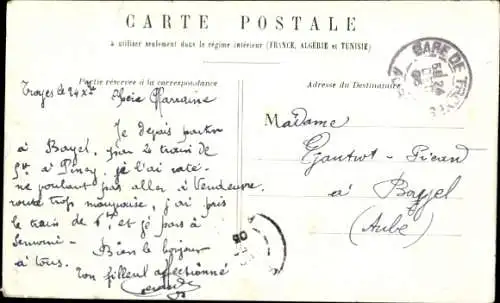 CARTE POSTALE
à utiliser seulement dans le régime intérieur (FRANCE, ALGÉRIE et TUNISIE)
Partie réservée à la correspondance
Adresse du Destinataire
GARE DE TROYES
Troyes le 24 Xbre
Chère Marraine
Je devais partir
à Bayel, par le train de
5h à Piney, je l'ai raté
ne pouvant pas aller à Vendeuvre
route trop mauvaise, j'ai pris
le train de 6h, et je pars à
Bien le bonjour
à tous.
Ton filleul affectionné
Madame
Picard
à Bayel
(Aube)